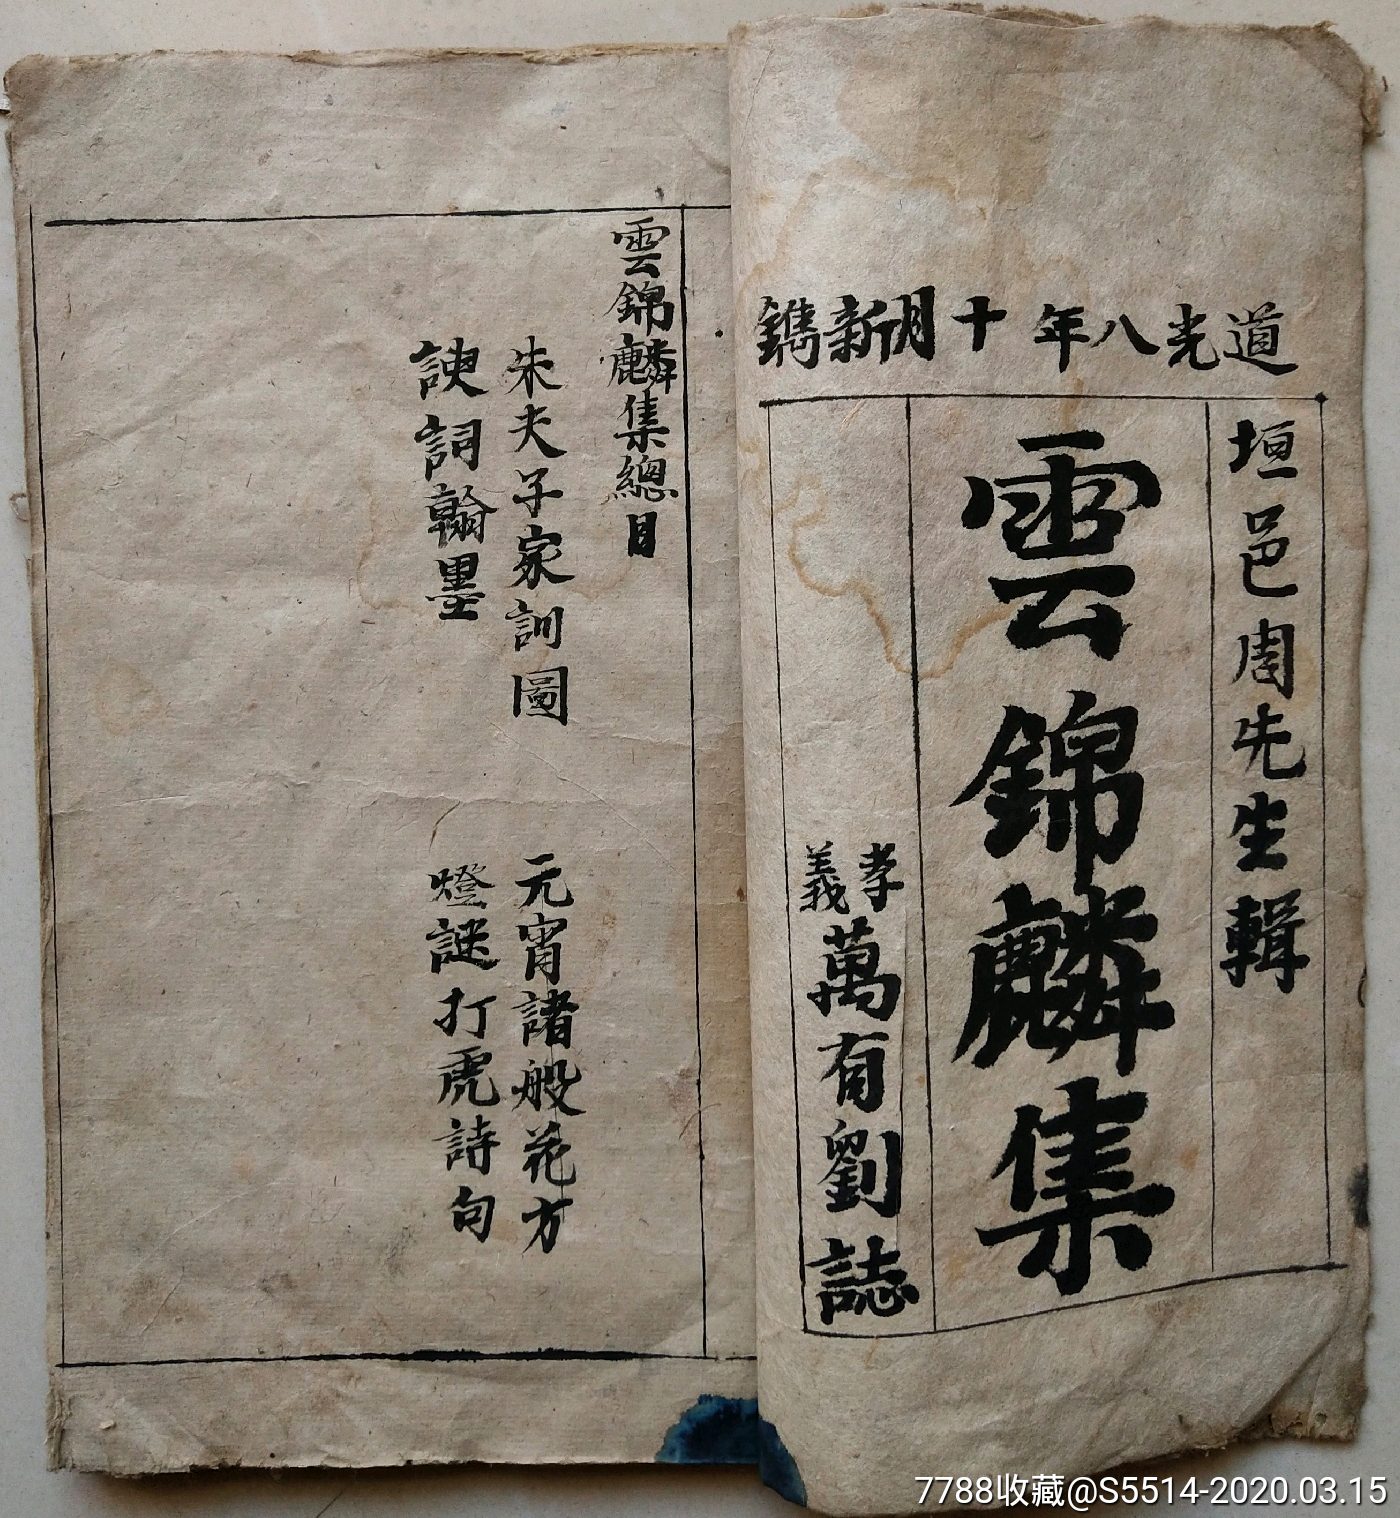 道光八年十月新鐫
垣邑周先生輯
雲錦麟集
孝義
萬有劉誌
雲錦麟集總目
朱夫子家訓圖
元宵諸般花方
諛詞翰墨
燈謎打虎詩句
7788收藏@S5514-2020.03.15